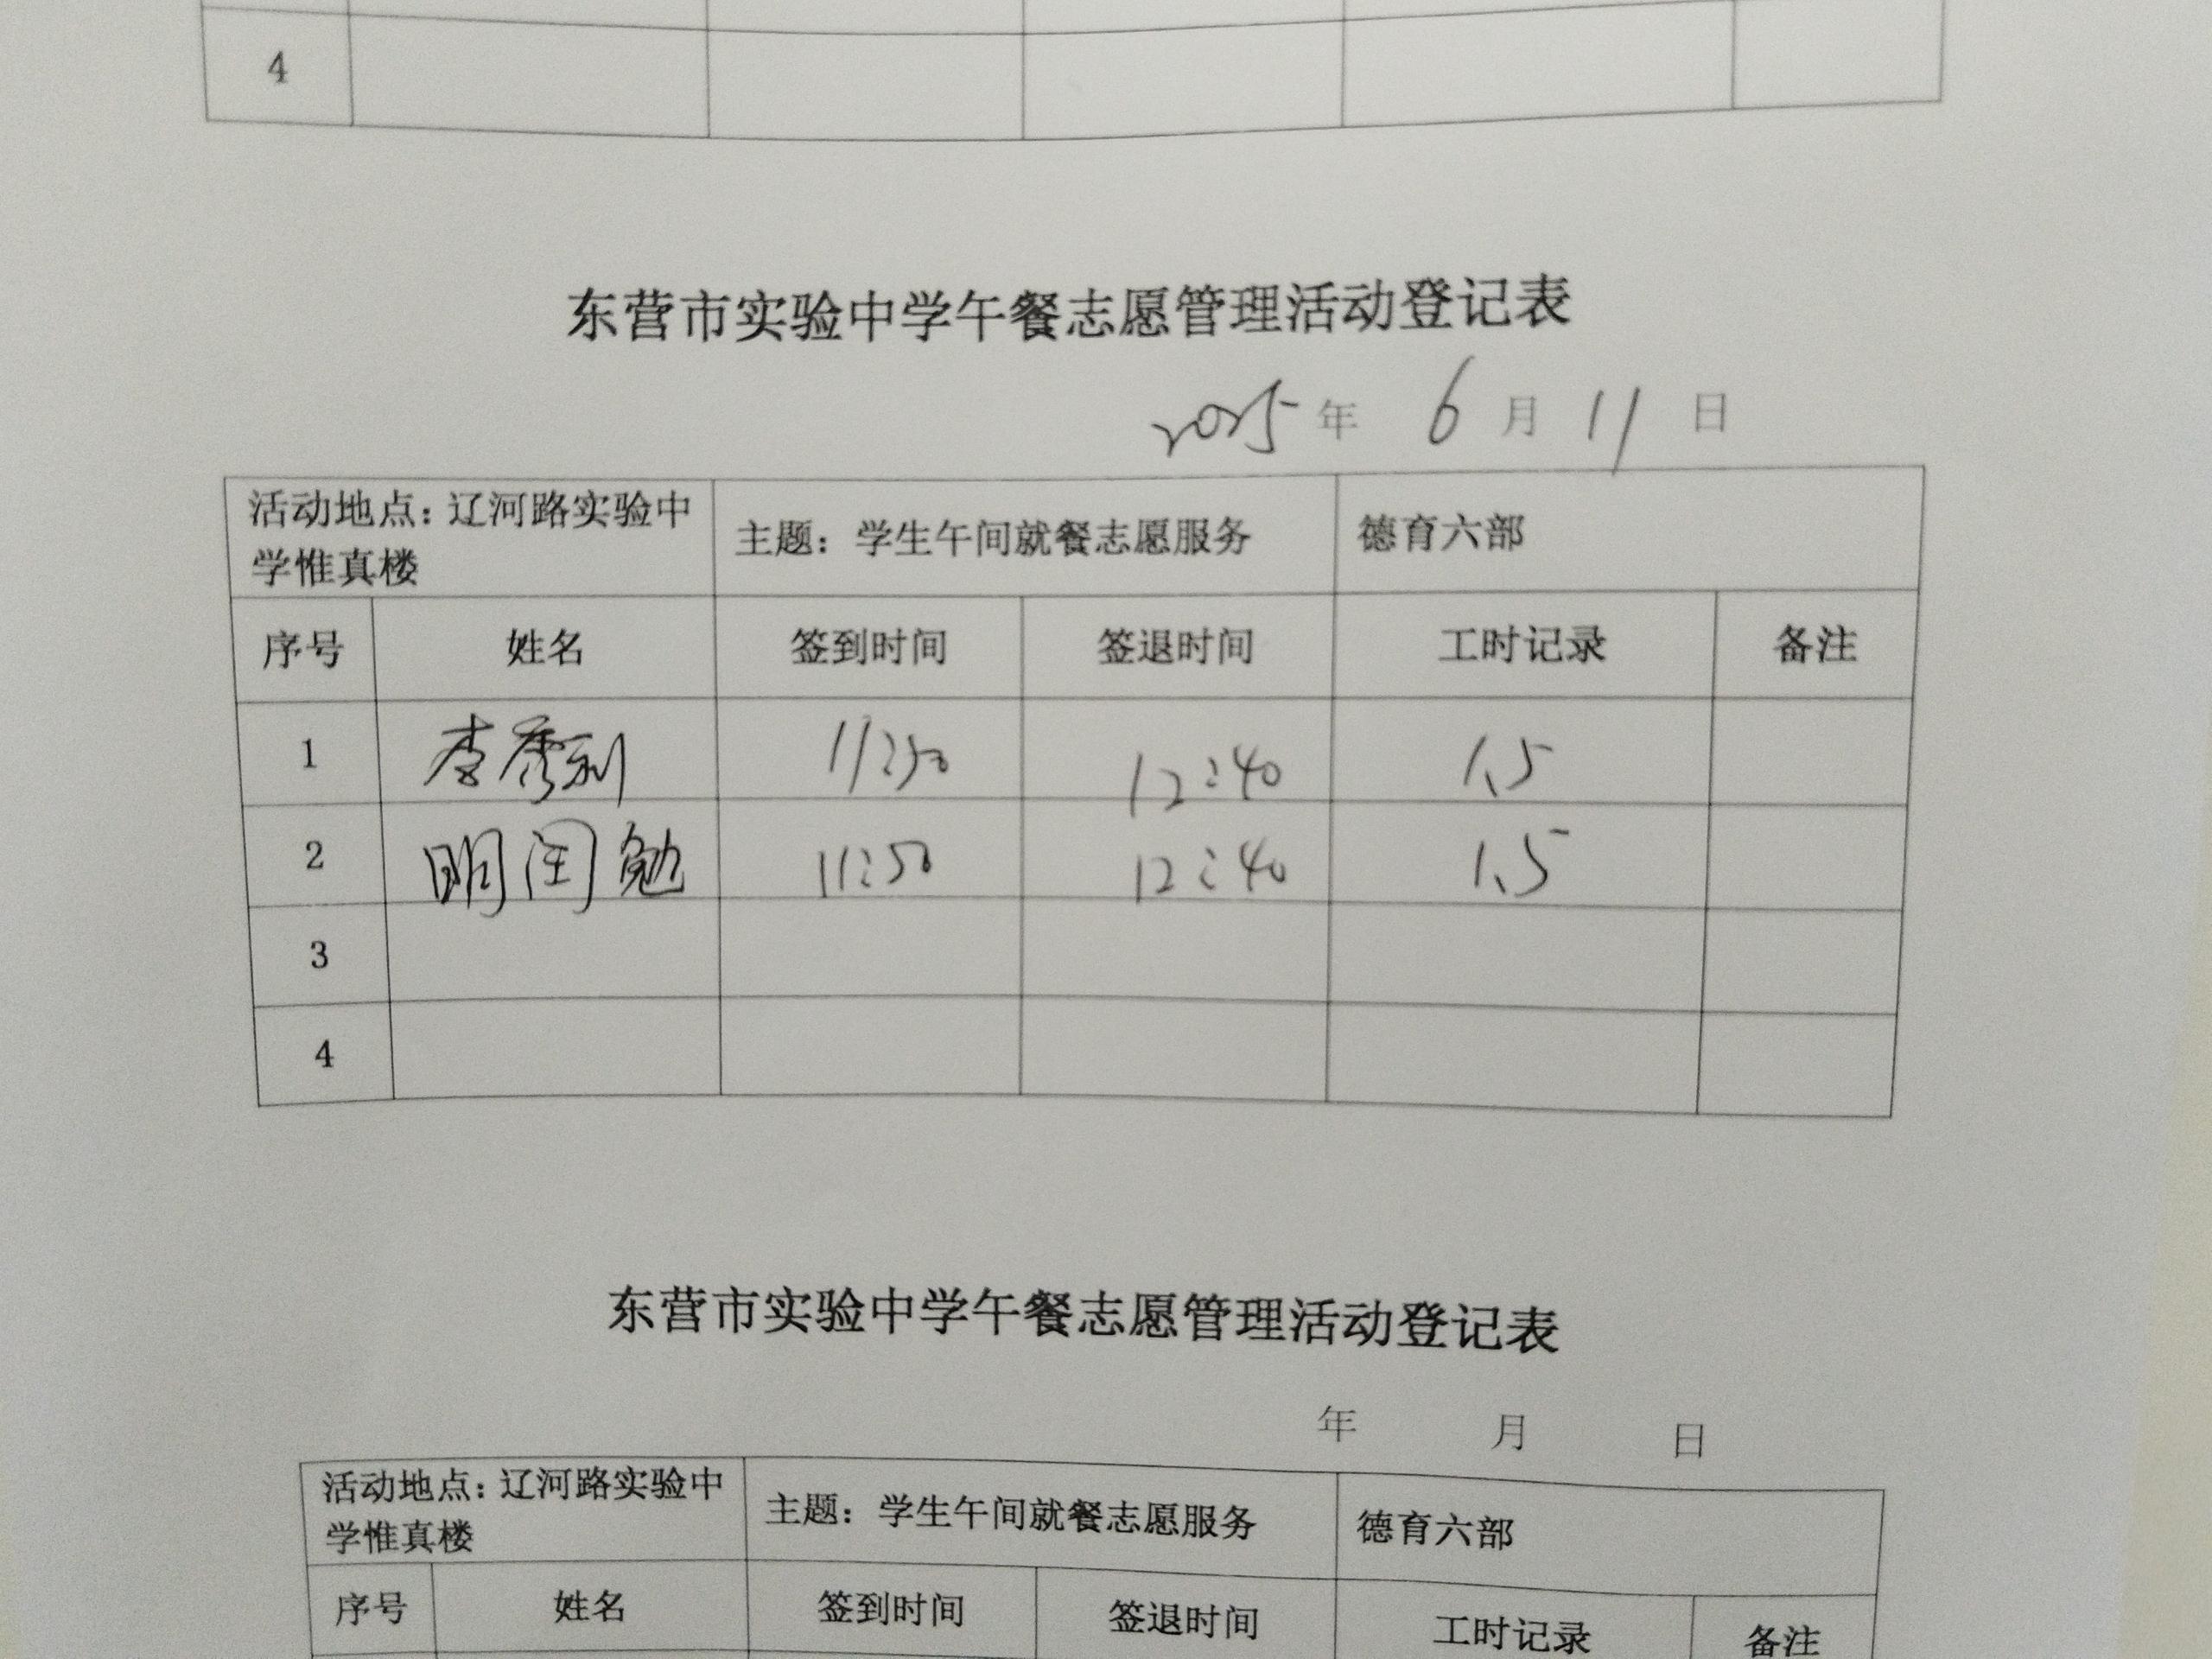 4
东营市实验中学午餐志愿管理活动登记表
2025 年 6 月 11 日
活动地点：辽河路实验中
学惟真楼
主题：学生午间就餐志愿服务
德育六部
序号 姓名 签到时间 签退时间 工时记录 备注
1 李秀利 11:50 12:40 1.5
2 明闰勉 11:50 12:40 1.5
3
4
东营市实验中学午餐志愿管理活动登记表
年 月 日
活动地点：辽河路实验中
学惟真楼
主题：学生午间就餐志愿服务
德育六部
序号 姓名 签到时间 签退时间 工时记录 备注